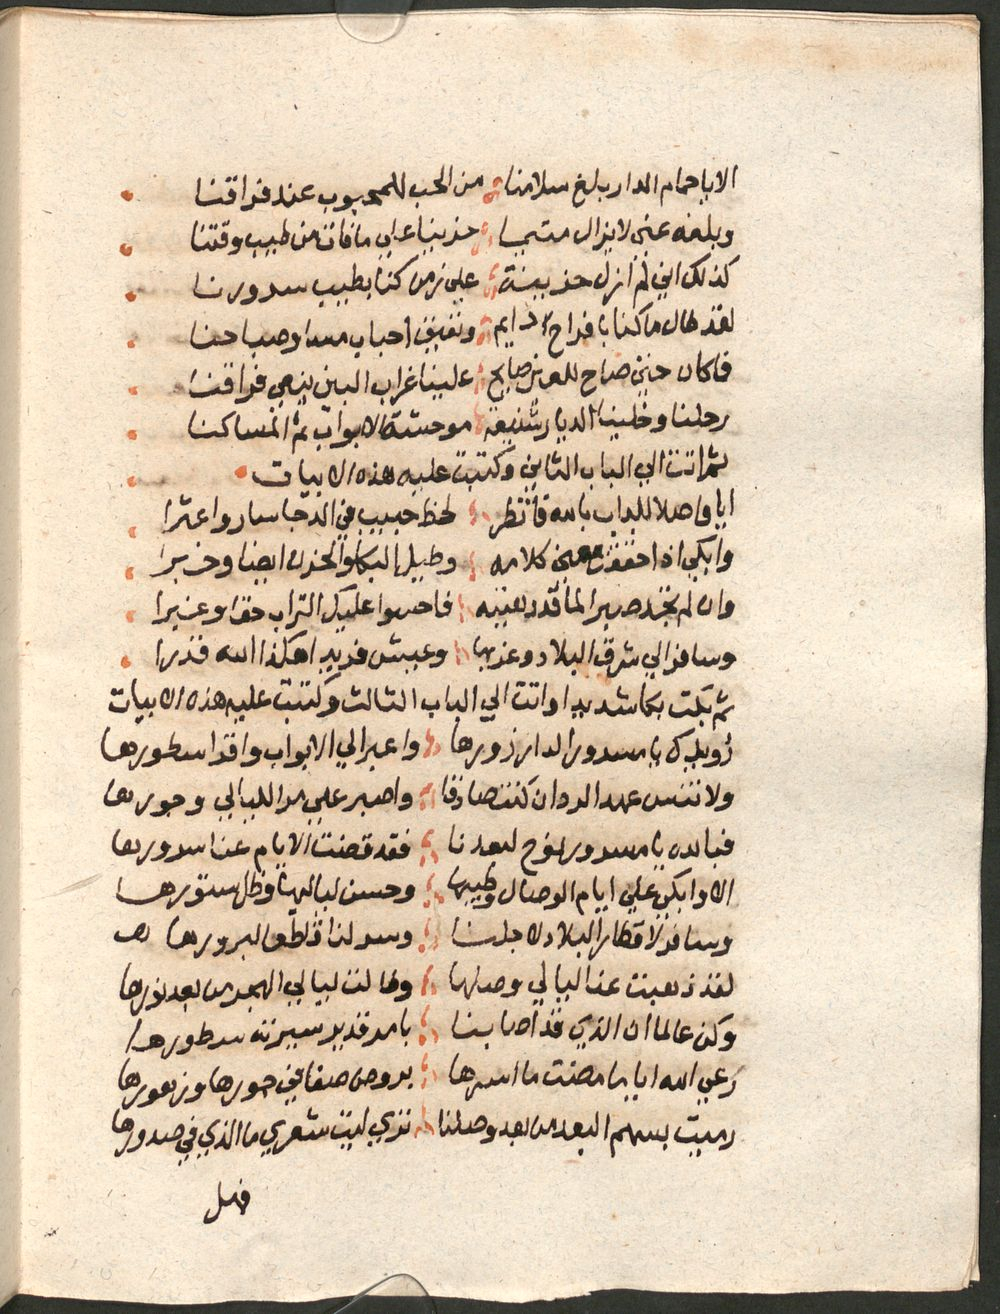 الا يا حمام الدار بلغ سلامنا من الحب للمحبوب عند فراقنا
وبلغه عني لا يزال متيما حزينا علي ما فات من طيب وقتنا
كذلك اني لم ازل حزينة علي زمن كنا بطيب سرورنا
لقد طال ما كنا بافراح دايم وتفيق احباب مسا وصباحنا
فا كان حتي صاح للعين صايح علينا غراب البين ينعي فراقنا
رحلنا وخلينا الديار شنيعة موحشة الابواب ثم المساكنا
ثم اتت الي الباب الثاني وكتبت عليه هذه الابيات
ايا واصلا للباب بالله فانظر لحظ حبيب في الدجا سار واعثرا
وابكي اذا حققت معني كلامه وطيل البكا والحزن ايضا وخبرا
وان لم تجد صبرا لما قد لقيته فاحسوا عليك التراب حقا وغبرا
وسافر الي شرق البلاد وغربها وعيش فريد اهكذا الله قدرا
ثم بكت بكا شديدا واتت الي الباب الثالث وكتبت عليه هذه الابيات
رويدك يا مسرور الدار زورها واعبر الي الابواب واقرا سطورها
ولا تنس عهد الود ان كنت صادقا واصبر علي مر الليالي وجورها
فبالله يا مسرور نوح لبعدنا فقد قضت الايام عنا سرورها
الا وابكي علي ايام الوصال وطيبها وحسن لياليها وظل ستورها
وسافر لاقطار البلاد لاجلنا
لقد ذهبت عنا ليالي وصلها وطالت ليالي الهجر من بعد نورها
وكن عالما ان الذي قد اصابنا بامر قدير سيرته سطورها
رعي الله اياما مضت ما اسرها بروض صفا في حورها وزهورها
رميت بسهم البعد من بعد وصلنا تري ليت شعري ما الذي في صدورها
فهل